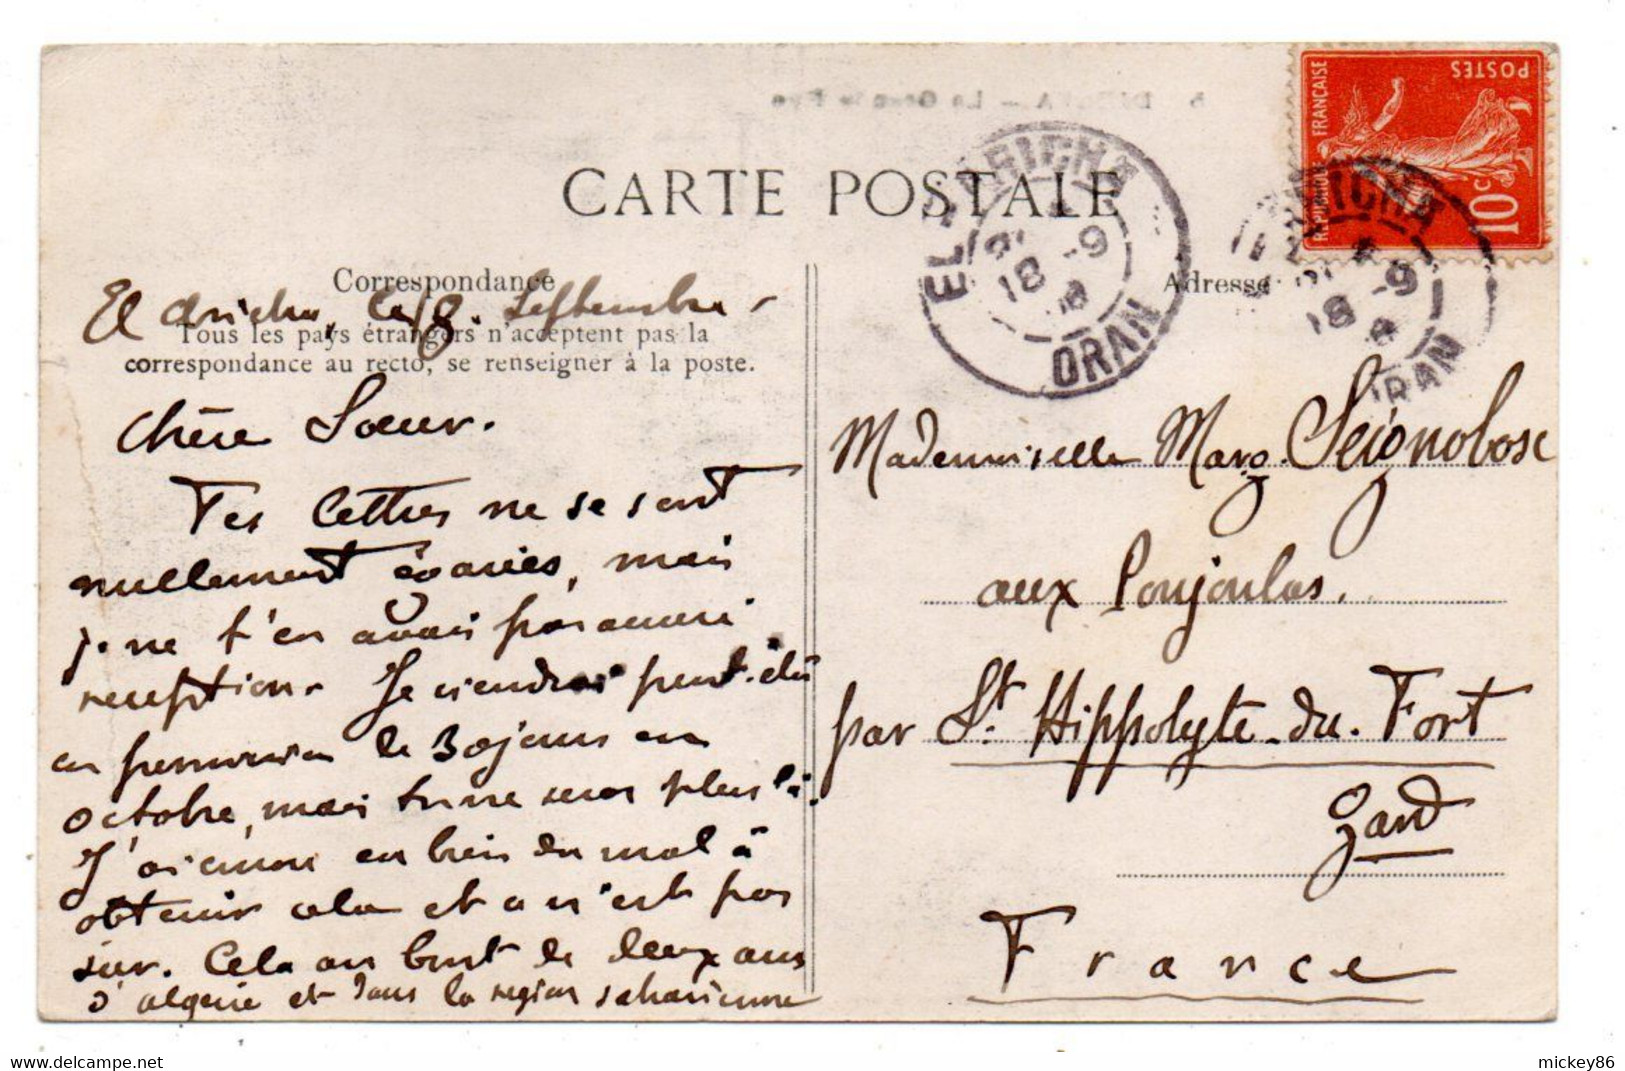 CARTE POSTALE
Correspondance
El Aricha, le 18. Septembre -
Tous les pays étrangers n'acceptent pas la
correspondance au recto, se renseigner à la poste.
Chère Soeur.
Tes lettres ne se sont
nullement égarées, mais
je ne t'en avais pas accusé
reception. Je viendrai peut-être
en permission de 30 jours en
octobre, mais tu ne seras plus là.
J'ai encore eu bien du mal à
obtenir cela et ce n'est pas
sûr. Cela au bout de deux ans
d'algérie et dans la region saharienne
Adresse
Mademoiselle Marg. Seignobosc
aux Poujoulas.
par St. Hippolyte-du-Fort
Gard
France
EL-ARICHA
18 -9
ORAN
RICHA
18 -9
ORAN
REPUBLIQUE FRANCAISE
POSTES
10c
www.delcampe.net
mickey86